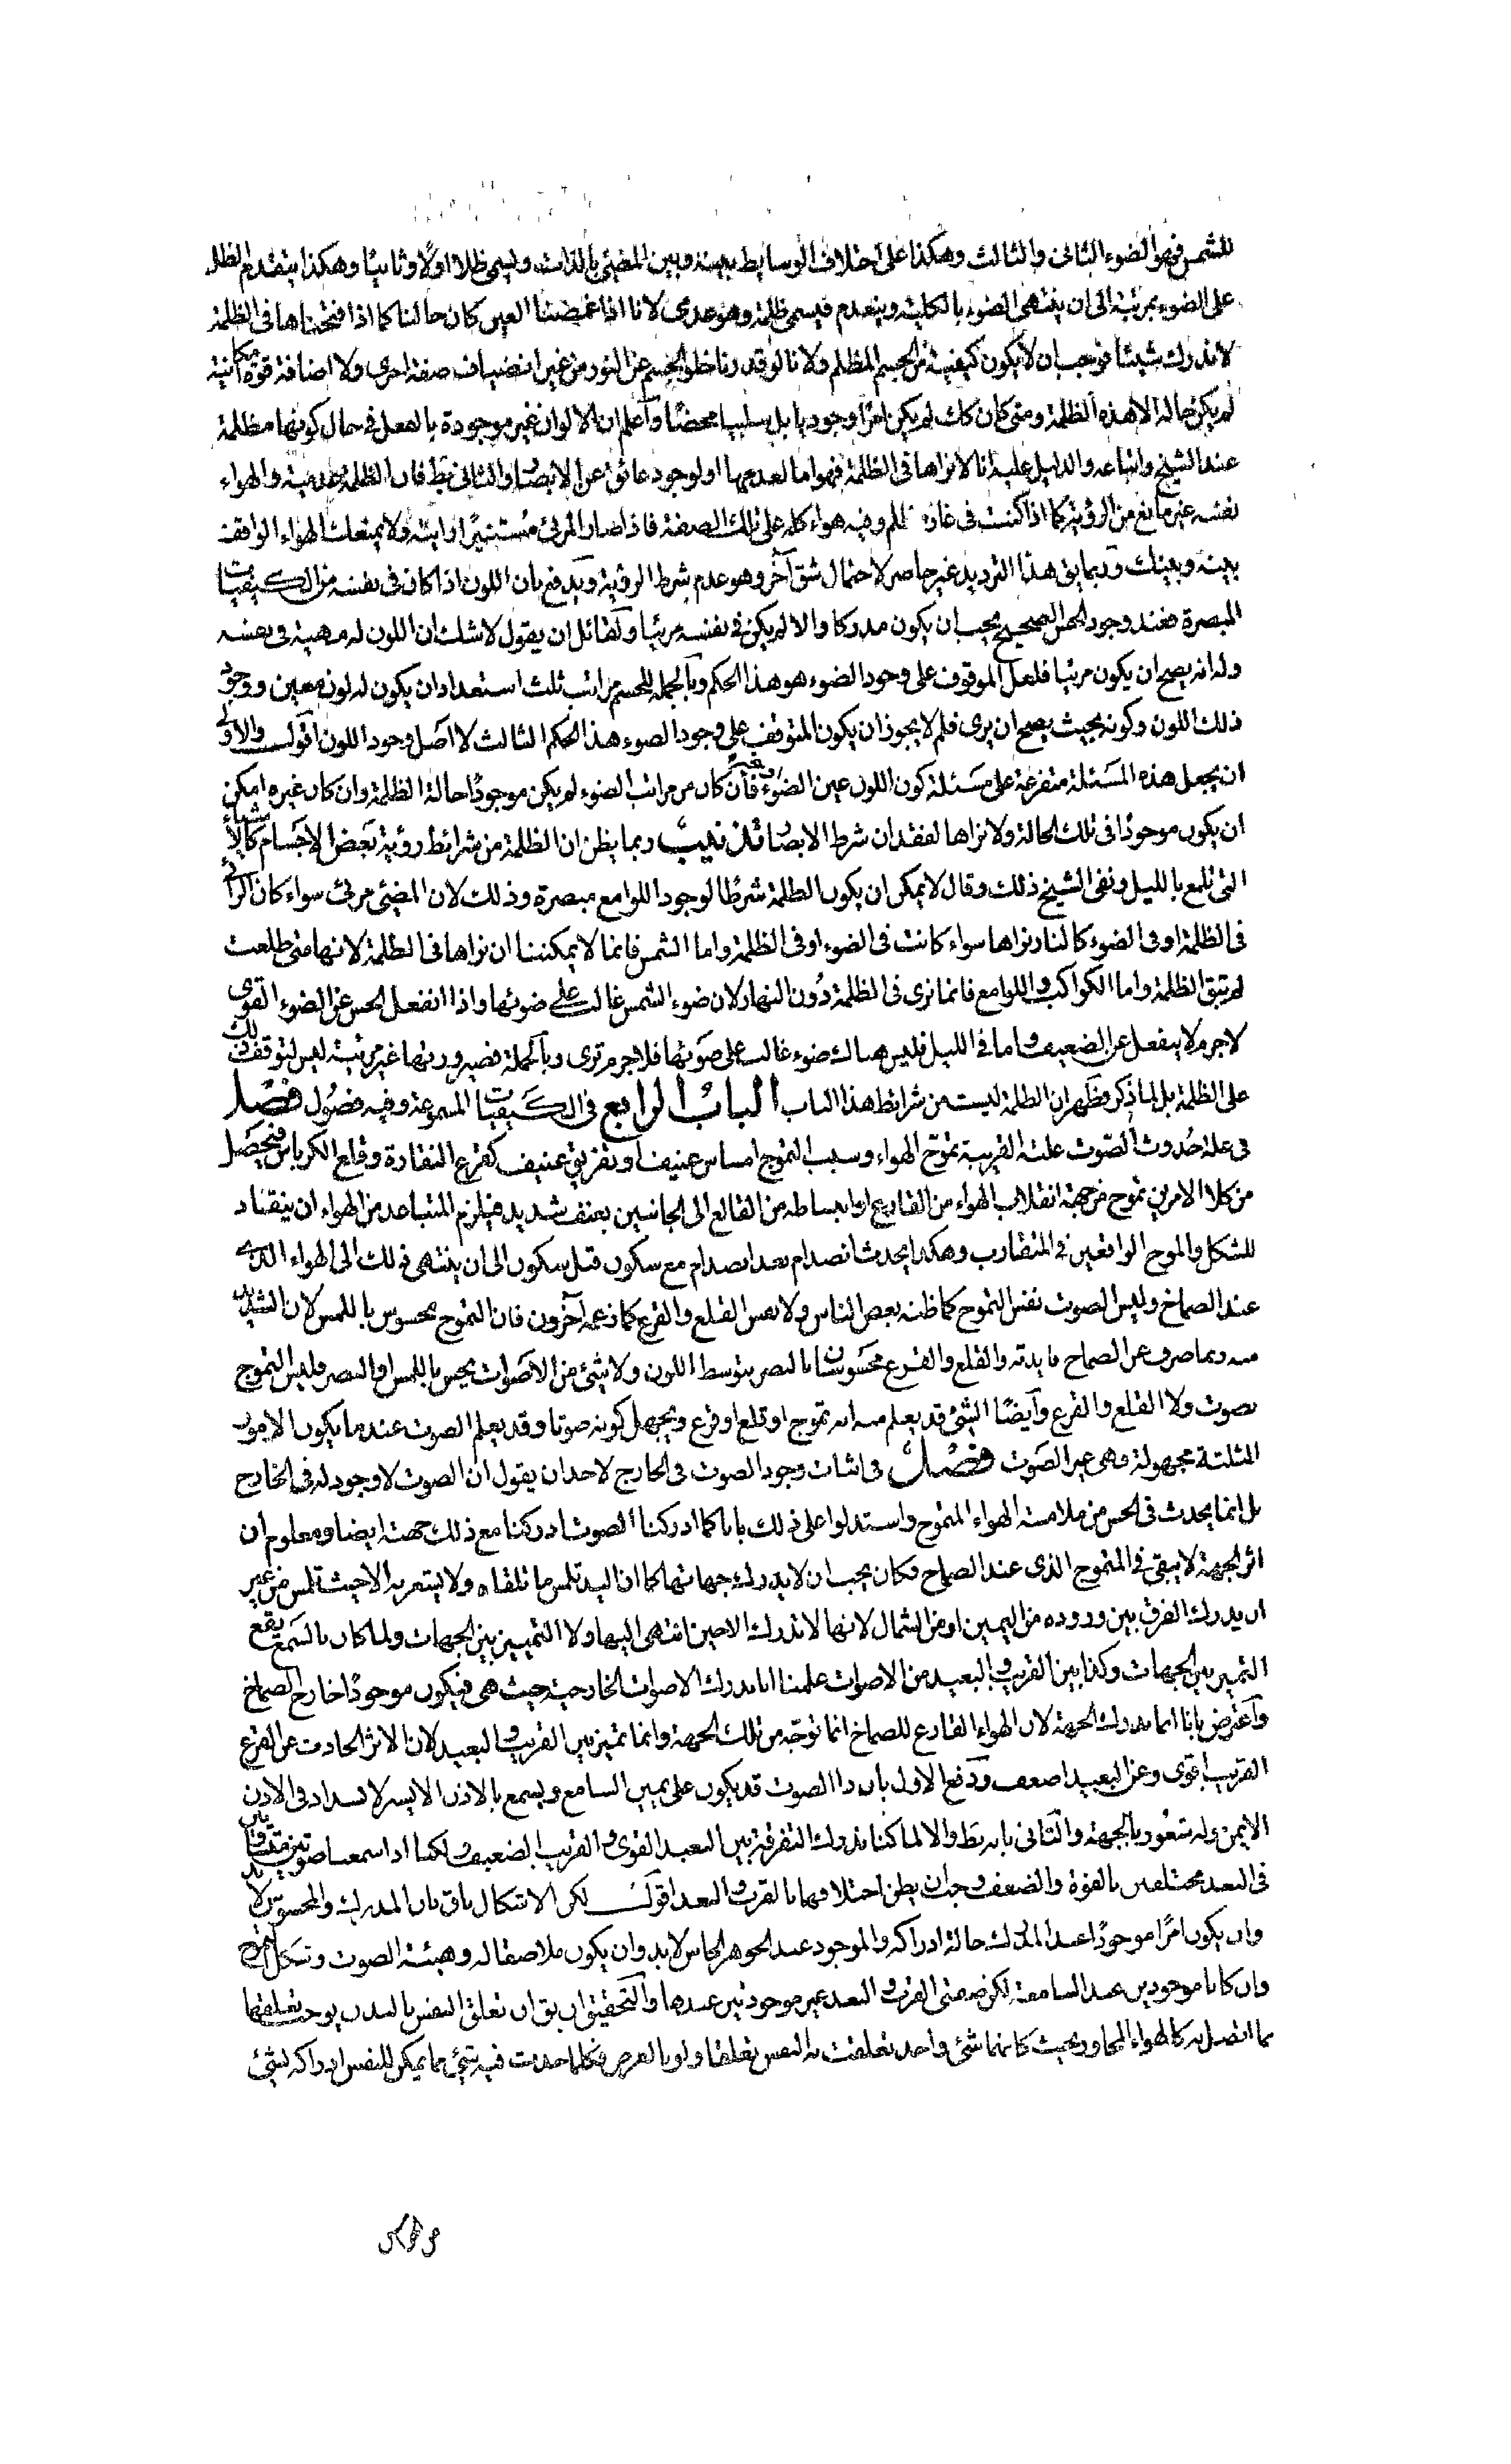 للشمس فهو الضوء الثانى والثالث وهكذا على اختلاف الوسايط بينه وبين المضيئ بالذات ويسمى ظلا اولًا وثانيًا وهكذا يتقدم الظل
على الضوء بمرتبة الى ان ينتهى الضوء بالكلية وينعدم فيسمى ظلمة وهو عدمى لانا اذا غمضنا العين كان حالنا كما اذا فتحناها فى الظلمة
لا ندرك شيئًا فوجب ان لا يكون كيفية فى الجسم المظلم ولانا لو قدرنا خلو الجسم عن النور من غير انضياف صفة اخرى ولا اضافة قوة امكانية
لم يكن حاله الا هذه الظلمة ومتى كان كك لم يكن امرًا وجوديا بل سلبيا محضًا واعلم ان الالوان غير موجودة بالفعل فى حال كونها مظلمة
عند الشيخ واتباعه والدليل عليه انا لا نراها فى الظلمة فهو اما لعدمها او لوجود عائق عن الابصار والثانى بط فان الظلمة عدمية والهواء
نفسه غير مانع من الرؤية كما اذا كنت فى غار مظلم وفيه هواء كله على تلك الصفة فاذا صار المرئ مستنيرًا رايته ولا يمنعك الهواء الواقف
بينه وبينك وربما يق هذا الترديد غير حاصر لاحتمال شق آخر وهو عدم شرط الرؤية ويدفع بان اللون اذا كان فى نفسه من الكيفيات
المبصرة فعند وجود الحس الصحيح يجب ان يكون مدركا والا لم يكن فى نفسه مرئيا ولقائل ان يقول لا شك ان اللون له مهية فى نفسه
وله انه يصح ان يكون مرئيا فلعل الموقوف على وجود الضوء هو هذا الحكم وبالجملة للجسم مراتب ثلث استعداد ان يكون له لون معين ووجود
ذلك اللون وكونه بحيث يصح ان يرى فلم لا يجوز ان يكون المتوقف على وجود الضوء هذا الحكم الثالث لا اصل وجود اللون اقول والاولى
ان يجعل هذه المسئلة متفرعة على مسئلة كون اللون عين الضوء او غيره فان كان من مراتب الضوء لم يكن موجودًا حالة الظلمة وان كان غيره امكن
ان يكون موجودًا فى تلك الحالة ولا نراها لفقدان شرط الابصار تذنيب ربما يظن ان الظلمة من شرائط رؤية بعض الاجسام كالاشياء
التى تلمع بالليل ونفى الشيخ ذلك وقال لا يمكن ان يكون الظلمة شرطًا لوجود اللوامع مبصرة وذلك لان المضيئ مرئ سواء كان الرائى
فى الظلمة او فى الضوء كالنار نراها سواء كانت فى الضوء او فى الظلمة واما الشمس فانما لا يمكننا ان نراها فى الظلمة لانها متى طلعت
لم تبق الظلمة واما الكواكب واللوامع فانما ترى فى الظلمة دون النهار لان ضوء الشمس غالب على ضوئها واذا انفعل الحس عن الضوء القوى
لا جرم لا ينفعل عن الضعيف واما فى الليل فليس هناك ضوء غالب على ضوئها فلا جرم ترى وبالجملة فصيرورتها غير مرئية ليس لتوقف ذلك
على الظلمة بل لما ذكر فظهر ان الظلمة ليست من شرائط هذا الباب الباب الرابع فى الكيفيات المسموعة وفيه فصول فصل
فى علة حدوث الصوت علته القريبة تموج الهواء وسبب التموج امساس عنيف او تفريق عنيف كقرع النقارة وقلع الكرباس فيحصل
من كلا الامرين تموج من جهة انقلاب الهواء من القارع او انبساطه من القالع الى الجانبين بعنف شديد فيلزم المتباعد من الهواء ان ينقاد
للشكل والموج الواقعين فى المتقارب وهكذا يحدث انصدام بعد انصدام مع سكون قبل سكون الى ان ينتهى ذلك الى الهواء الذى
عند الصماخ وليس الصوت نفس التموج كما ظنه بعض الناس ولا نفس القلع والقرع كما زعمه آخرون فان التموج محسوس باللمس لان الشديد
منه ربما ضرب عن الصماخ والقلع والقرع محسوسان بالبصر بتوسط اللون ولا شئ من الاصوات يحس باللمس والبصر فليس التموج
بصوت ولا القلع والقرع وايضًا الشئ قد يعلم منه انه تموج او قلع او قرع ويجهل كونه صوتا وقد يعلم الصوت عندما يكون الامور
الثلثة مجهولة فهى غير الصوت فصل فى اثبات وجود الصوت فى الخارج لاحد ان يقول ان الصوت لا وجود له فى الخارج
بل انما يحدث فى الحس من ملامسة الهواء المتموج واستدلوا على ذلك بانا كما ادركنا الصوت ادركنا مع ذلك جهته ايضا ومعلوم ان
اثر الجهة لا يبقى فى المتموج الذى عند الصماخ فكان يجب ان لا يدرك جهاتها كما ان اليد تلمس ما تلقاه ولا يشعر به الا حيث تلمس من غير
ان يدرك الفرق بين وروده من اليمين او من الشمال لانها لا تدرك الا حين انتهى اليها ولا التمييز بين الجهات ولما كان بالسمع يقع
التميز بين الجهات وكذا بين القريب والبعيد من الاصوات علمنا انا ندرك الاصوات الخارجية حيث هى فيكون موجودًا خارج الصماخ
واعترض بانا انما ندرك الجهة لان الهواء القارع للصماخ انما توجه من تلك الجهة وانما تميز بين القريب والبعيد لان الاثر الحادث عن القرع
القريب اقوى وعن البعيد اضعف ودفع الاول بان ذا الصوت قد يكون على يمين السامع ويسمع بالاذن الايسر لانسداد فى الاذن
الايمن وله شعور بالجهة والثانى بانه بط والا لما كنا ندرك التفرقة بين البعيد القوى والقريب الضعيف ولكنا اذا سمعنا صوتين متساويين
فى البعد مختلفين بالقوة والضعف وجب ان يظن اختلافهما بالقرب والبعد اقول لكن الاشكال باق بان المدرك والمحسوس لا بد
وان يكون امرًا موجودًا عند المدرك حالة ادراكه والموجود عند الجوهر الحاس لا بد وان يكون ملاصقا له وهيئة الصوت وتشكل التموج
وان كانا موجودين عند السامعة لكن صفتى القرب والبعد غير موجودتين عندها والتحقيق ان يق ان تعلق النفس بالبدن يوجب تعلقها
بما اتصل به كالهواء المجاور بحيث كانهما شئ واحد تعلقت به النفس تعلقا ولو بالعرض فكلما حدث فيه شئ مما يمكن للنفس ادراكه لشئ